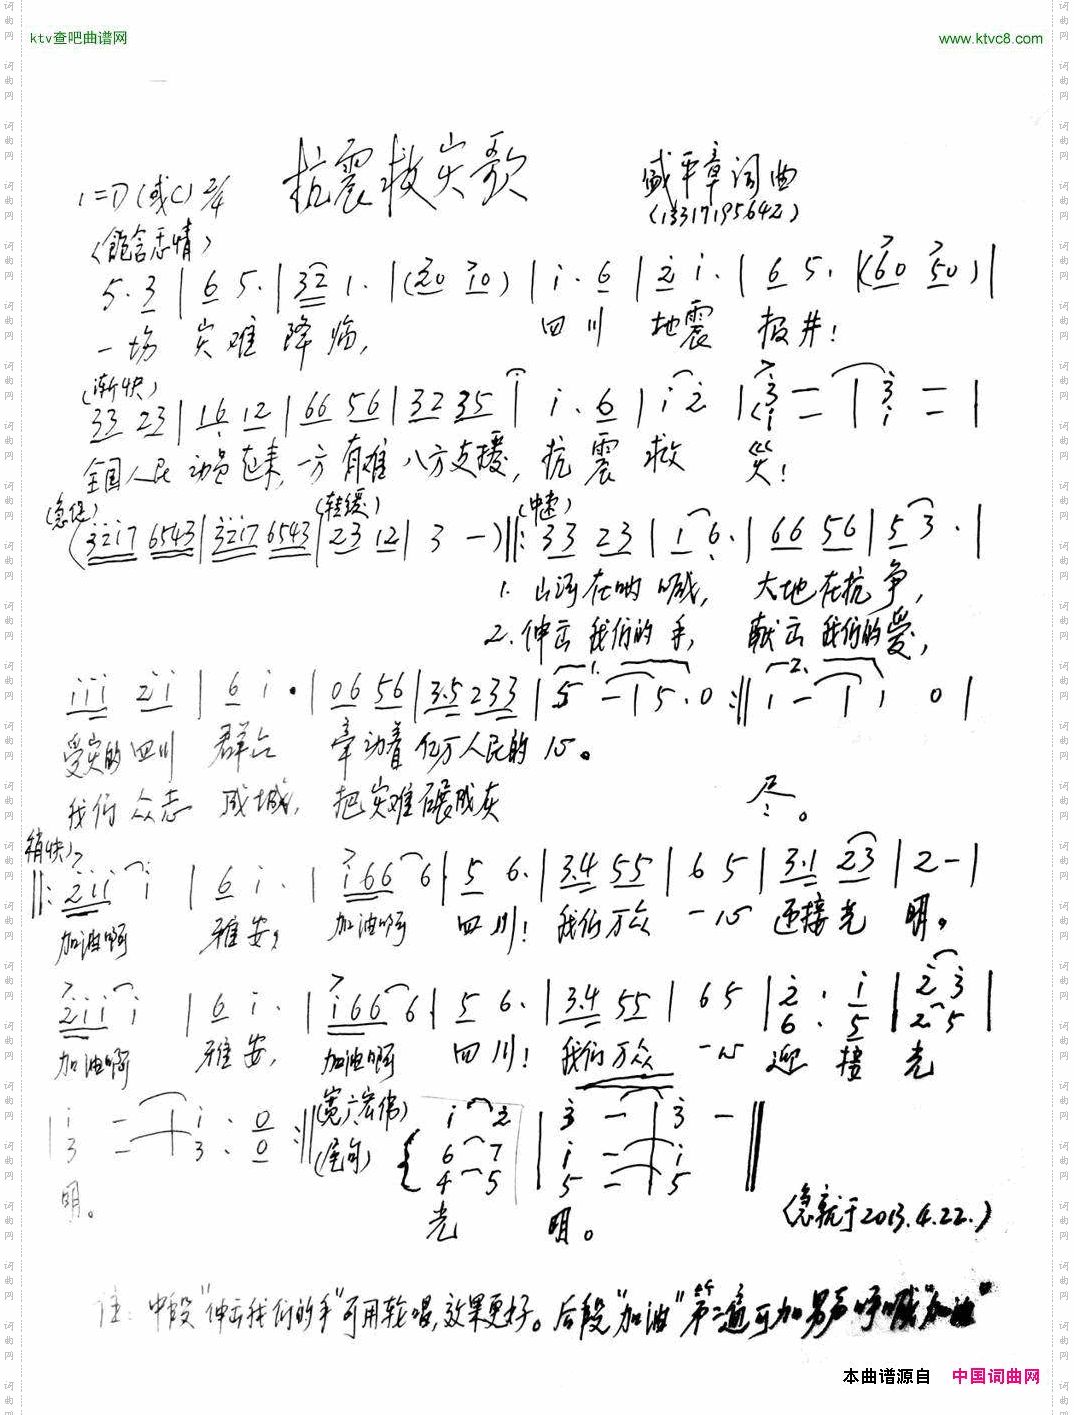 ktv查吧曲谱网
www.ktvc8.com
抗震救灾歌
1=D(或C) 2/4
盛平章词曲
(13317195642)
(饱含悲情)
5·3 | 6 5· | 32 1· | (20 10) | i·6 | 2 i· | 6 5· | (60 50) |
一场 灾难 降临, 四川 地震 报井!
(渐快)
33 23 | 16 12 | 66 56 | 32 35 | i·6 | i 2 | 3 — | 3 — |
全国人民 动员起来, 一方有难 八方支援, 抗震救 灾!
(急促) (转缓) (中速)
(32i7 6543 | 32i7 6543 | 23 12 | 3 —) ‖: 33 23 | 1 6· | 66 56 | 5 3· |
1. 山河在呐喊, 大地在抗争,
2. 伸出我们的手, 献出我们的爱,
iii 2i | 6 i· | 06 56 | 3·5 233 | 5 — | 5·0 :‖ i — | i 0 |
受灾的四川 群众 牵动着亿万人民的心。
我们众志 成城, 把灾难碾成灰 尽。
稍快
‖: 2ii i | 6 i· | i66 6 | 5 6· | 3·4 55 | 6 5 | 3·1 23 | 2 — |
加油啊 雅安, 加油啊 四川! 我们万众 一心 迎接光 明,
2ii i | 6 i· | i66 6 | 5 6· | 3·4 55 | 6 5 | 2· i | 2 3 |
6· 5 | 2 5 |
加油啊 雅安, 加油啊 四川! 我们万众 一心 迎 接 光
i — | i·0 :‖ (宽广宏伟) i 2 | 3 — | 3 — ‖
3 — | 3·0 (尾句) 6 7 | i — | i
4 5 | 5 — | 5
明。 光 明。
(急就于2013.4.22.)
注: 中段"伸出我们的手"可用轮唱,效果更好。后段"加油"第二遍可加男声呼喊"加油"
本曲谱源自 中国词曲网
词曲网